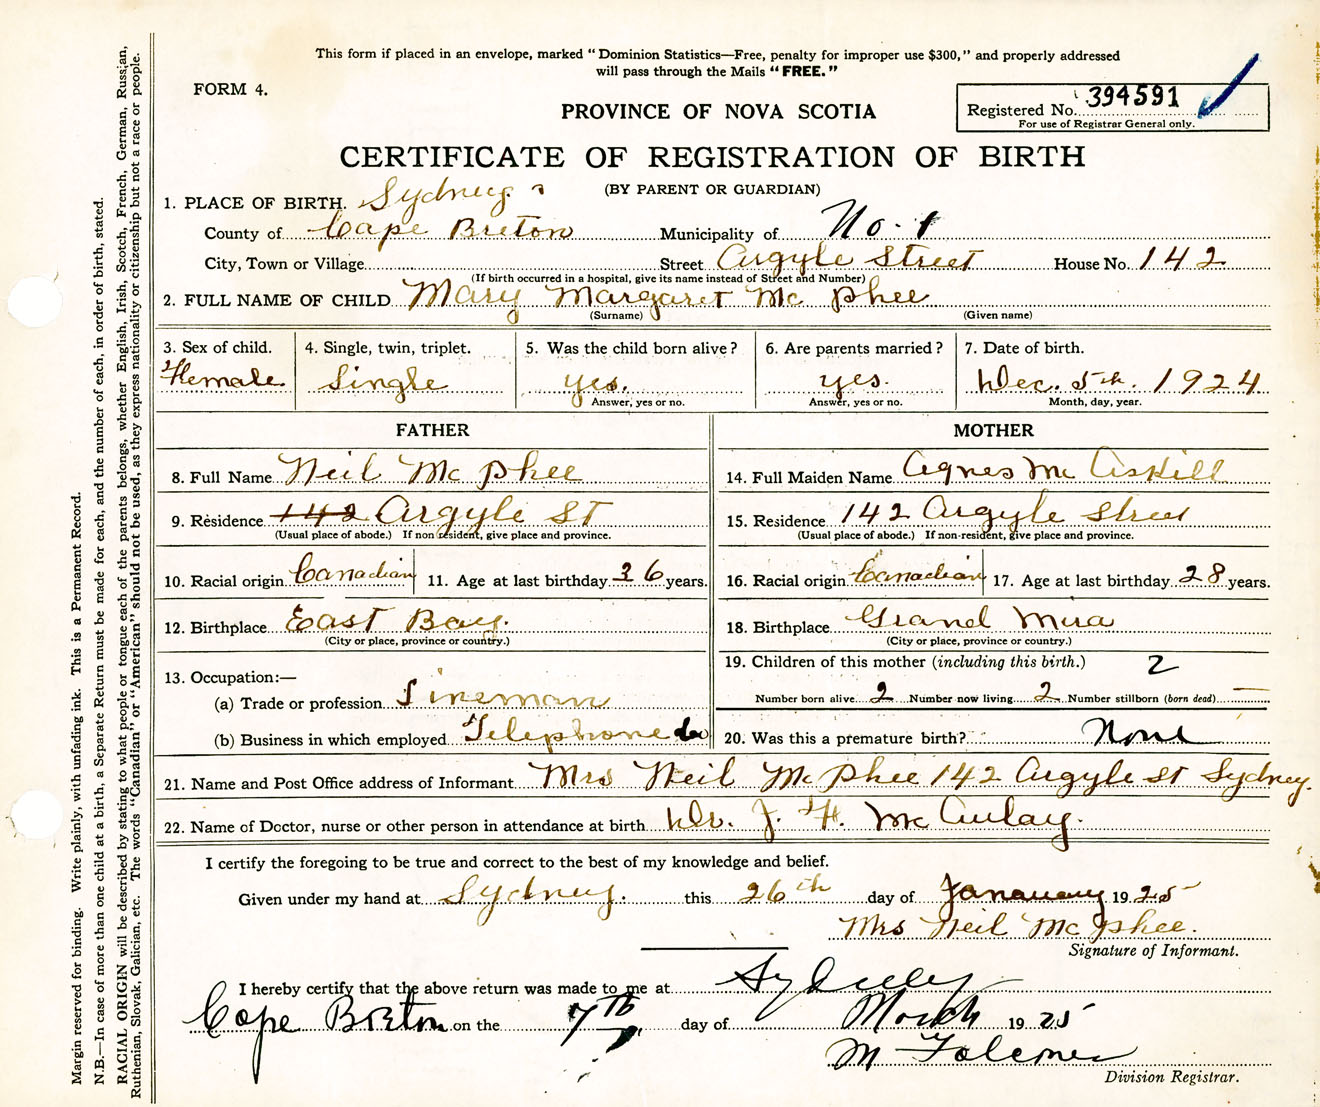 This form if placed in an envelope, marked "Dominion Statistics—Free, penalty for improper use $300," and properly addressed
will pass through the Mails "FREE."
FORM 4.
Registered No. 394591
For use of Registrar General only.
PROVINCE OF NOVA SCOTIA
CERTIFICATE OF REGISTRATION OF BIRTH
(BY PARENT OR GUARDIAN)
1. PLACE OF BIRTH. Sydney
County of Cape Breton Municipality of No. 1
City, Town or Village Street Argyle Street House No. 142
(If birth occurred in a hospital, give its name instead of Street and Number)
2. FULL NAME OF CHILD Mary Margaret Mc Phee
(Surname) (Given name)
3. Sex of child. 4. Single, twin, triplet. 5. Was the child born alive? 6. Are parents married? 7. Date of birth.
Female Single yes. yes. Dec. 5th. 1924
Answer, yes or no. Answer, yes or no. Month, day, year.
FATHER
8. Full Name Neil Mc Phee
9. Residence 142 Argyle St
(Usual place of abode.) If non resident, give place and province.
10. Racial origin Canadian 11. Age at last birthday 36 years.
12. Birthplace East Bay.
(City or place, province or country.)
13. Occupation:—
(a) Trade or profession Lineman
(b) Business in which employed Telephone Co
MOTHER
14. Full Maiden Name Agnes Mc Askill
15. Residence 142 Argyle Street
(Usual place of abode.) If non-resident, give place and province.
16. Racial origin Canadian 17. Age at last birthday 28 years.
18. Birthplace Grand Mira
(City or place, province or country.)
19. Children of this mother (including this birth.) 2
Number born alive 2 Number now living 2 Number stillborn (born dead) —
20. Was this a premature birth? None
21. Name and Post Office address of Informant Mrs Neil McPhee 142 Argyle St Sydney.
22. Name of Doctor, nurse or other person in attendance at birth Dr. J. F. Mc Aulay.
I certify the foregoing to be true and correct to the best of my knowledge and belief.
Given under my hand at Sydney. this 26th day of Janauary 1925
Mrs Neil Mc Phee.
Signature of Informant.
I hereby certify that the above return was made to me at Sydney
Cape Breton on the 7th day of March 1925
M
Division Registrar.
Margin reserved for binding. Write plainly, with unfading ink. This is a Permanent Record.
N.B.—In case of more than one child at a birth, a Separate Return must be made for each, and the number of each, in order of birth, stated.
RACIAL ORIGIN will be described by stating to what people or tongue each of the parents belongs, whether English, Irish, Scotch, French, German, Russian,
Ruthenian, Slovak, Galician, etc. The words "Canadian" or "American" should not be used, as they express nationality or citizenship but not a race or people.